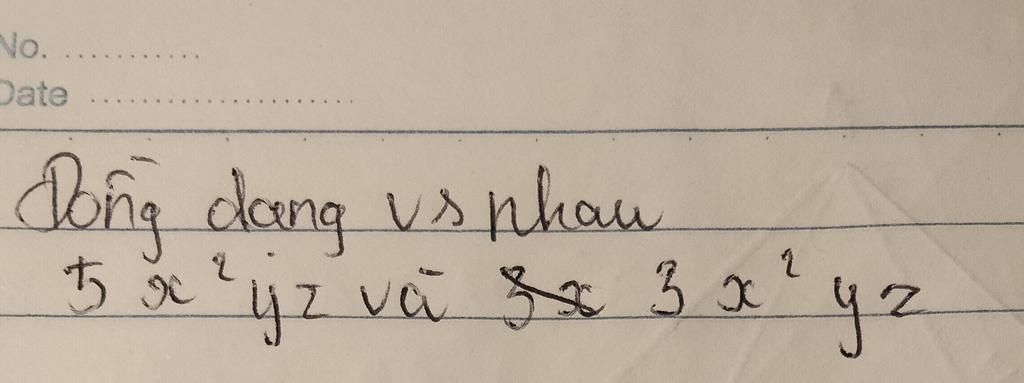 No. ...........
Date .....................
Đồng dạng vs nhau
5x²yz và 3x 3x²yz